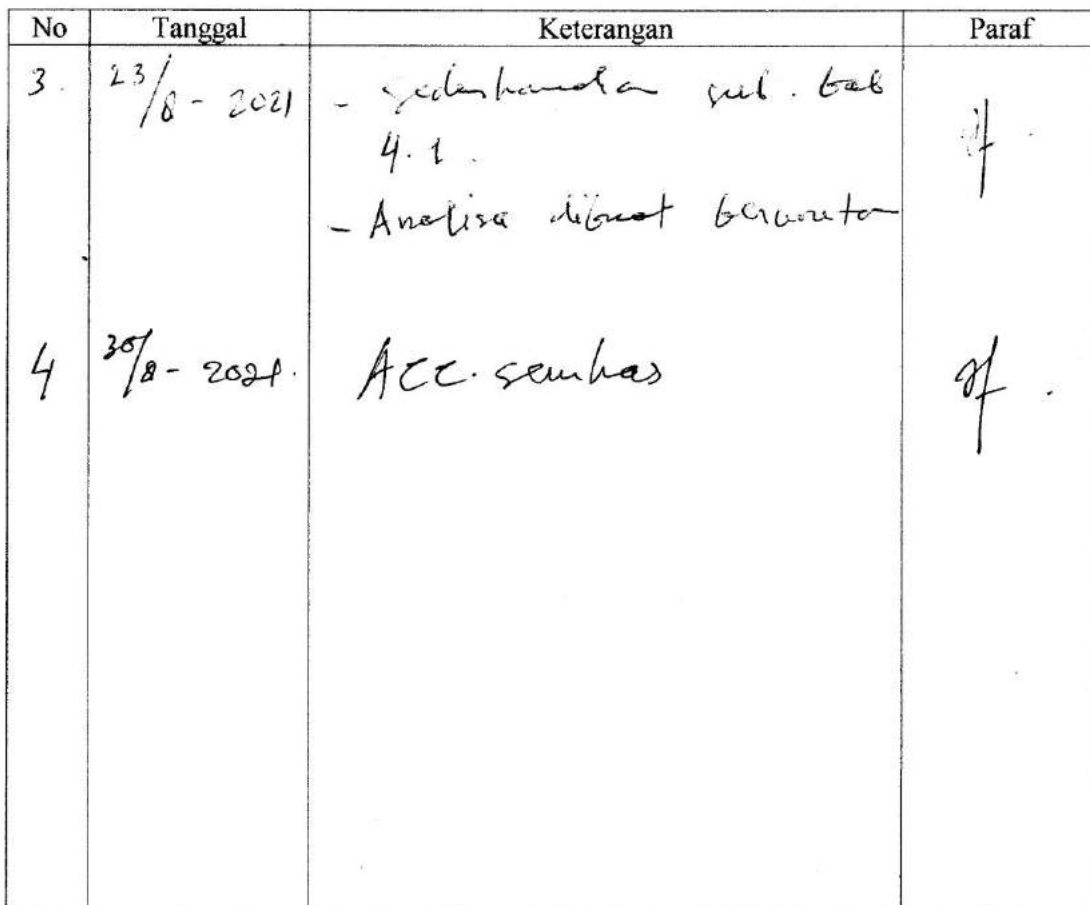 No Tanggal Keterangan Paraf
3. 23/8 - 2021 - sederhanakan sub. bab
4.1.
- Analisa dibuat berurutan
4 30/8 - 2021. ACC. semhas